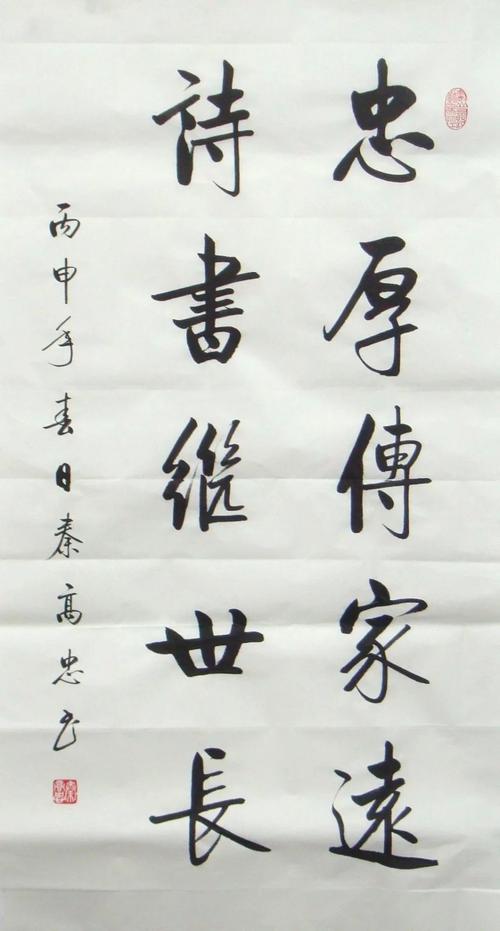 忠厚傳家遠
詩書継世長
丙申年春日秦高忠书